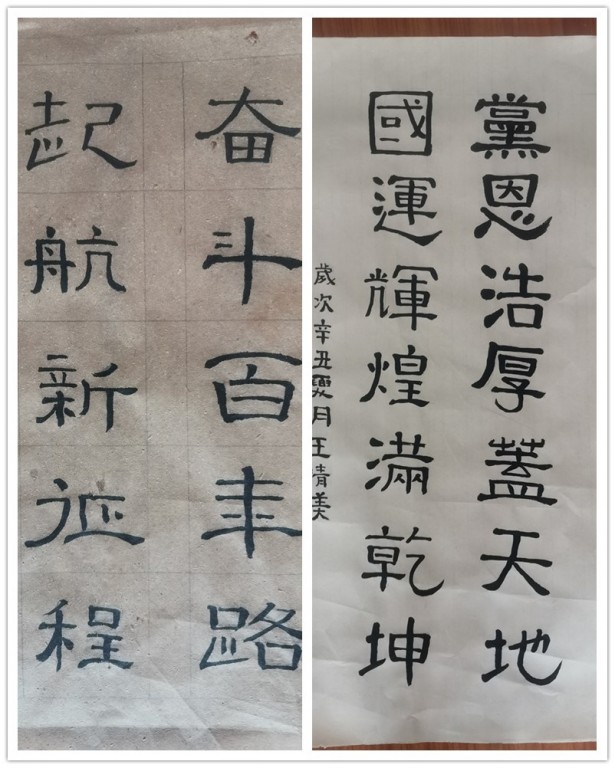 奋斗百年路
起航新征程
黨恩浩厚蓋天地
國運輝煌滿乾坤
歲次辛丑夏月王清美